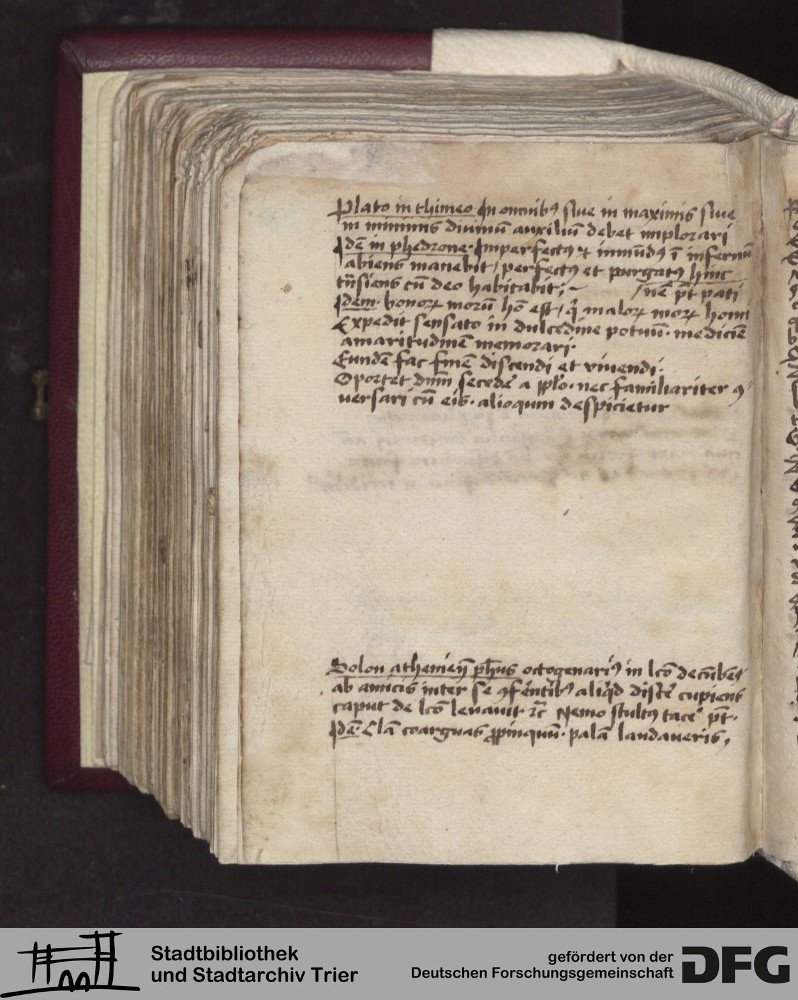 Plato in thimeo In omnibꝰ siue in maximis siue
in minimis diuinū auxiliū debet implorari
Idē in phedrone Imperfectꝰ ⁊ inmūdꝰ ī infernū
abiens manebit / perfectꝰ et purgatꝰ hinc
trāsiens cū deo habitabit;~ /nē pt̄ pati
Idem bonoꝝ moꝝ hō est / malorꝝ morꝝ homī
Expedit sensato in dulcedine potuū medicinē
amaritudinē memorari.
Eundē fac finē discendi et viuendi.
Oportet dnm̄ secede a pplo. nec familiariter ꝯ
versari cū eis. alioquin despicietur
Solon atheniēn̄ ph̄us octogenariꝰ in lcō decūbēs
ab amicis inter se ꝯferētibꝰ aliqd discē cupiens
caput de lcō leuauit ⁊c̄ Nemo stultꝰ tace pt̄.
Idē. Clā coarguas ꝓpinquū. palā laudaueris,
Stadtbibliothek
und Stadtarchiv Trier
gefördert von der
Deutschen Forschungsgemeinschaft
DFG